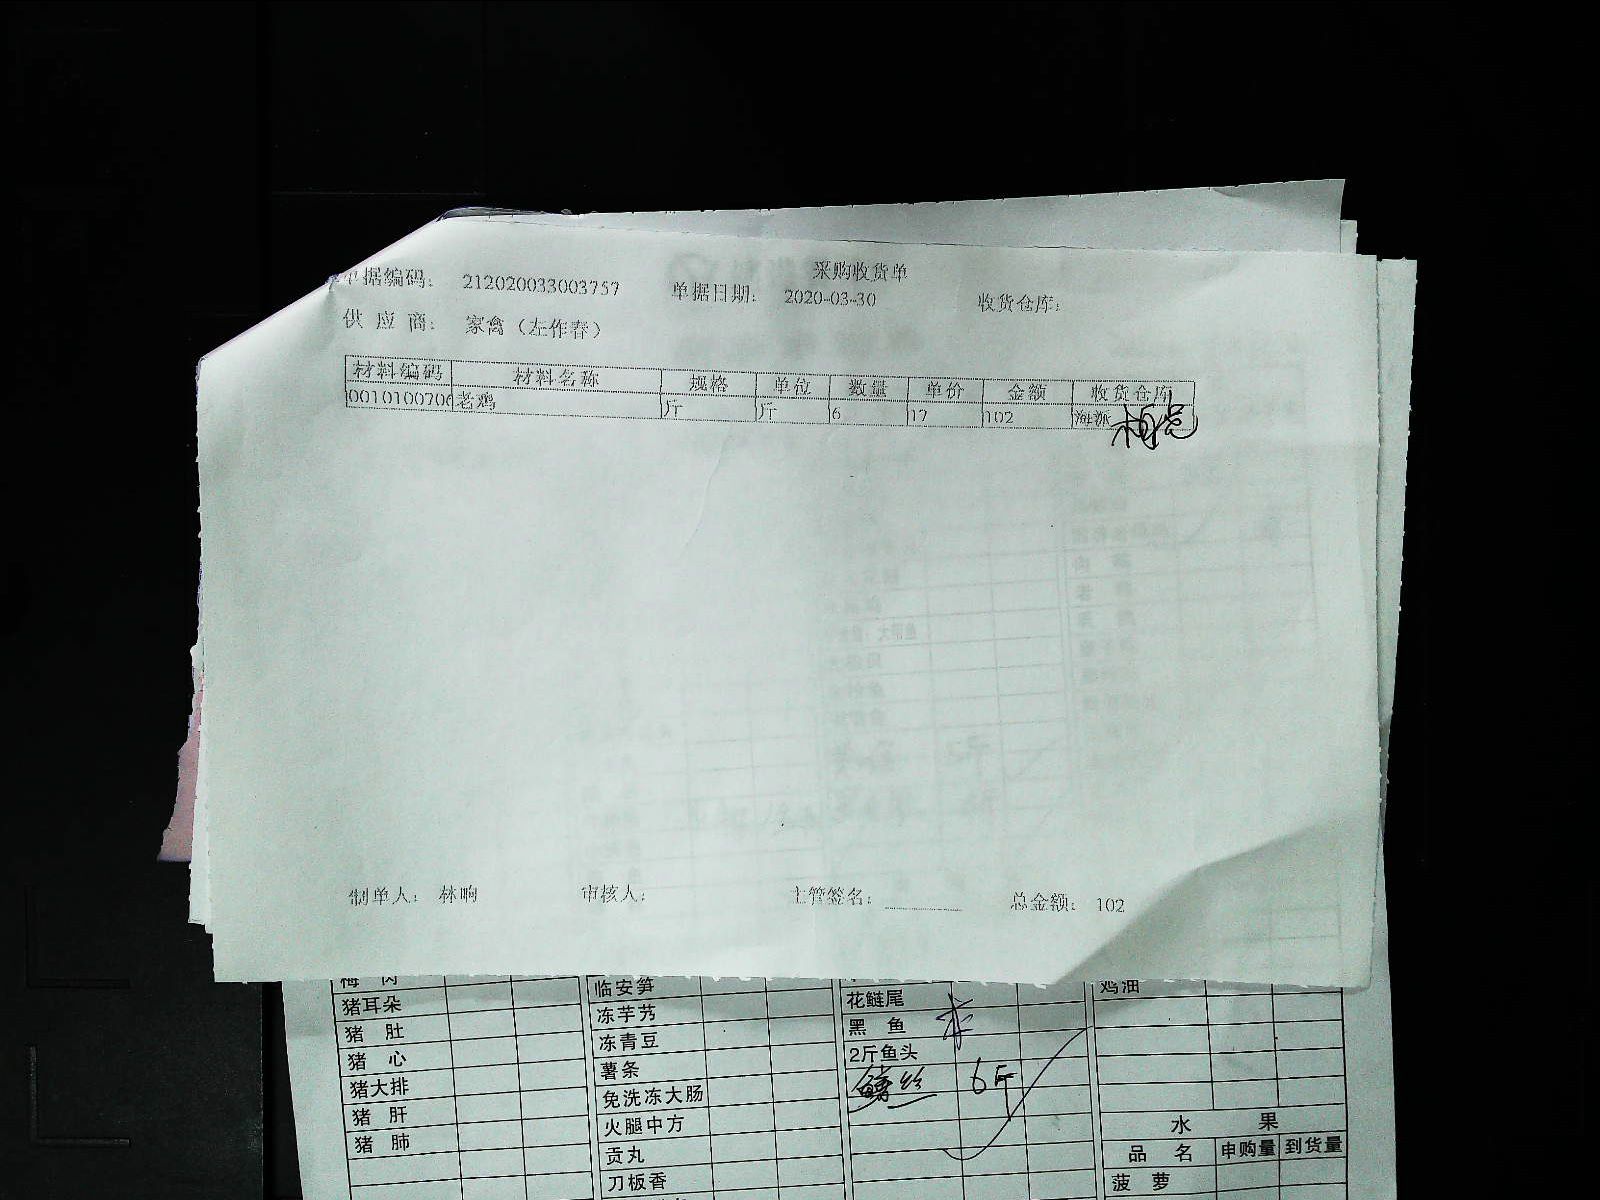 采购收货单
单据编码： 212020033003757 单据日期： 2020-03-30 收货仓库：
供 应 商： 家禽（左作春）
材料编码 材料名称 规格 单位 数量 单价 金额 收货仓库
0010100706 老鸡 斤 斤 6 17 102 海派
制单人： 林晌 审核人： 主管签名： 总金额： 102
梅 肉 临安笋 花鲢尾 鸡油
猪耳朵 冻芋艿 黑 鱼
猪 肚 冻青豆 2斤鱼头
猪 心 薯条 鳝丝 6斤
猪大排 免洗冻大肠
猪 肝 火腿中方 水 果
猪 肺 贡丸 品 名 申购量 到货量
刀板香 菠 萝